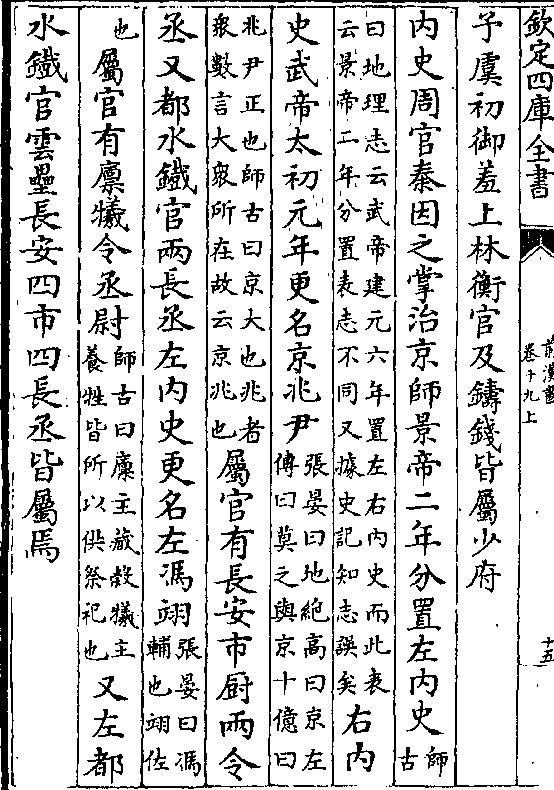 欽定四庫全書
前漢書
卷十九上
十五
子虞初御羞上林衡官及鑄錢皆屬少府
內史周官秦因之掌治京師景帝二年分置左內史師古
曰地理志云武帝建元六年置左右內史而此表
云景帝二年分置表志不同又據史記知志誤矣右內
史武帝太初元年更名京兆尹張晏曰地絕高曰京左
傳曰莫之與京十億曰
兆尹正也師古曰京大也兆者
衆數言大衆所在故云京兆也屬官有長安市廚兩令
丞又都水鐵官兩長丞左內史更名左馮翊張晏曰馮
輔也翊佐
也屬官有廩犧令丞尉師古曰廩主藏穀犧主
養牲皆所以供祭祀也又左都
水鐵官雲壘長安四市四長丞皆屬焉